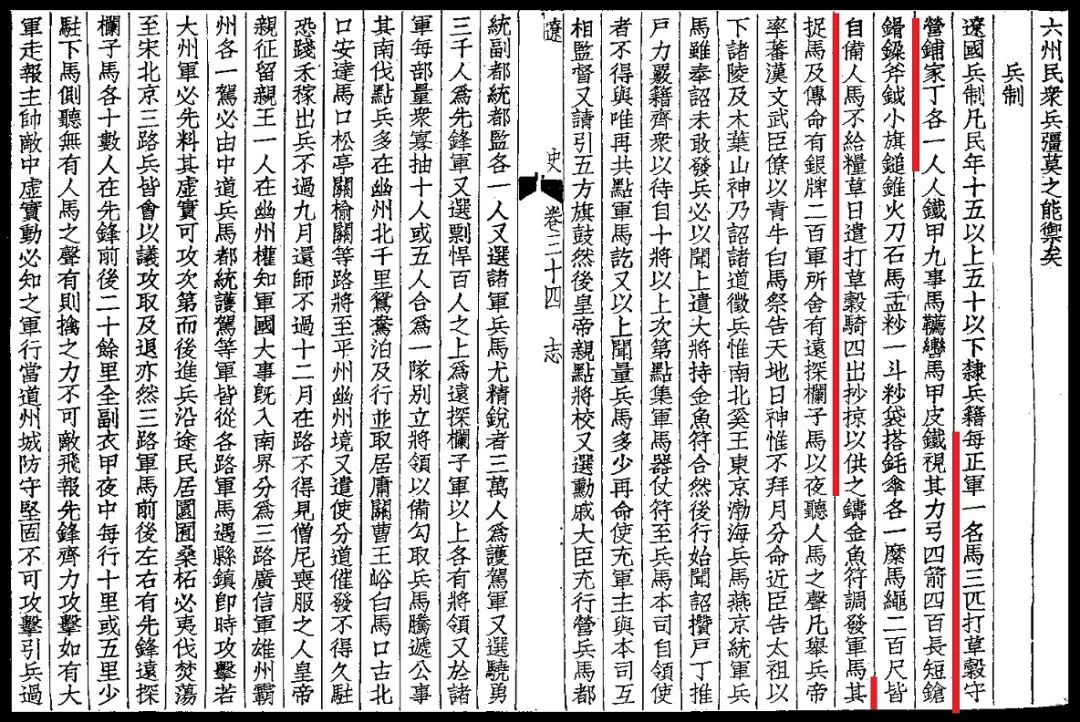 六州民衆兵彊莫之能禦矣
兵制
遼國兵制凡民年十五以上五十以下隸兵籍每正軍一名馬三匹打草穀守
營鋪家丁各一人人鐵甲九事馬韉轡馬甲皮鐵視其力弓四箭四百長短鎗
斧鉞小旗鎚錐火刀石馬盂粆一斗粆袋搭傘各一縻馬繩二百尺皆
自備人馬不給糧草日遣打草穀騎四出抄掠以供之鑄金魚符調發軍馬其
捉馬及傳命有銀牌二百軍所舍有遠探欄子馬以夜聽人馬之聲凡舉兵帝
率蕃漢文武臣僚以青牛白馬祭告天地日神惟不拜月分命近臣告太祖以
下諸陵及木葉山神乃詔諸道徵兵惟南北奚王東京渤海兵馬燕京統軍兵
馬雖奉詔未敢發兵必以聞上遣大將持金魚符合然後行始聞詔攢戶丁推
戶力覈籍齊衆以待自十將以上次第點集軍馬器仗符至兵馬本司自領使
者不得與唯再共點軍馬訖又以上聞量兵馬多少再命使充軍主與本司互
相監督又請引五方旗鼓然後皇帝親點將校又選勳戚大臣充行營兵馬都
遼史 卷三十四 志
統副都統都監各一人又選諸軍兵馬尤精銳者三萬人爲護駕軍又選驍勇
三千人爲先鋒軍又選剽悍百人之上爲遠探欄子軍以上各有將領又於諸
軍每部量衆寡抽十人或五人合爲一隊別立將領以備勾取兵馬騰遞公事
其南伐點兵多在幽州北千里鴛鴦泊及行並取居庸關曹王峪白馬口古北
口安達馬口松亭關榆關等路將至平州幽州境又遣使分道催發不得久駐
恐踐禾稼出兵不過九月還師不過十二月在路不得見僧尼喪服之人皇帝
親征留親王一人在幽州權知軍國大事旣入南界分爲三路廣信軍雄州霸
州各一駕必由中道兵馬都統護駕等軍皆從各路軍馬遇縣鎮卽時攻擊若
大州軍必先料其虛實可攻次第而後進兵沿途民居園囿桑柘必夷伐焚蕩
至宋北京三路兵皆會以議攻取及退亦然三路軍馬前後左右有先鋒遠探
欄子馬各十數人在先鋒前後二十餘里全副衣甲夜中每行十里或五里少
駐下馬側聽無有人馬之聲有則擒之力不可敵飛報先鋒齊力攻擊如有大
軍走報主帥敵中虛實動必知之軍行當道州城防守堅固不可攻擊引兵過